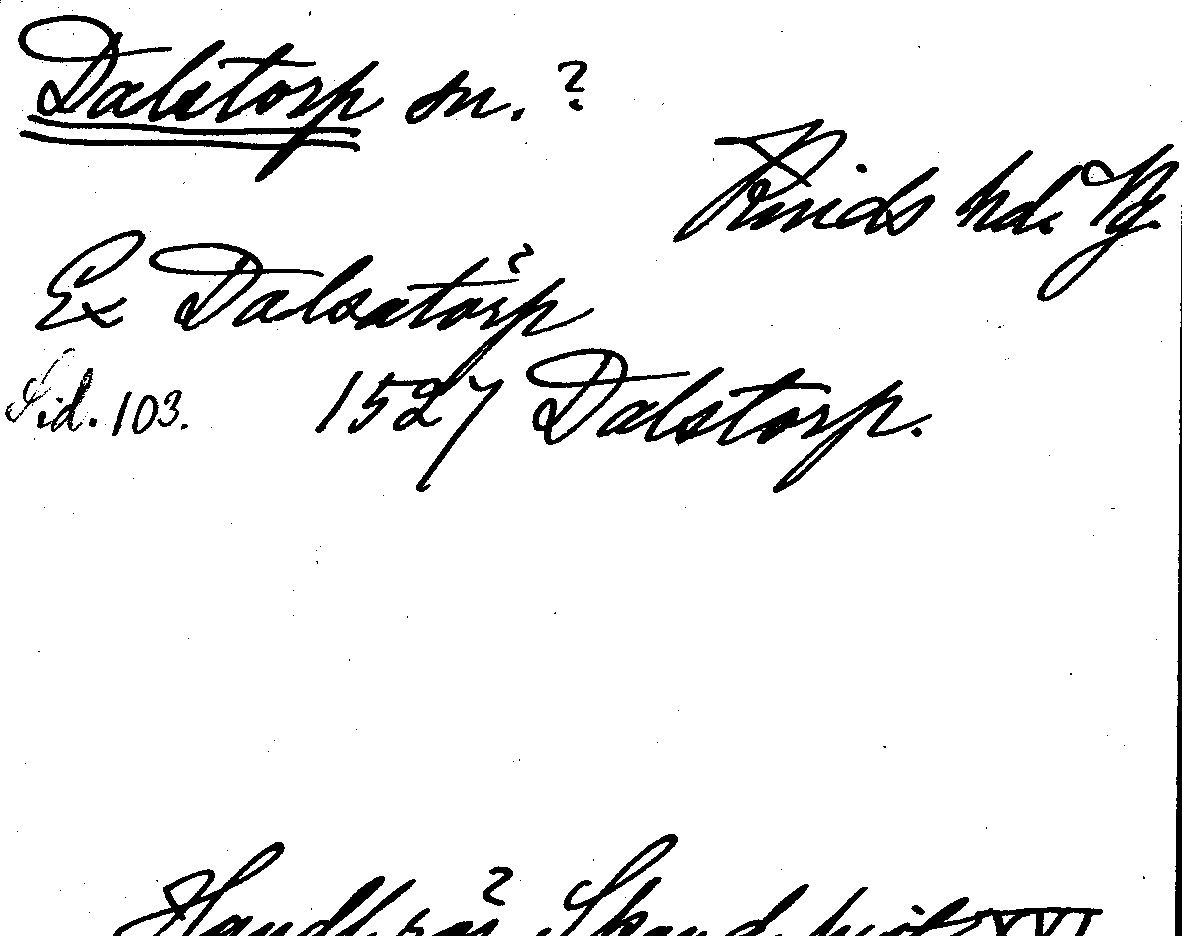 Dalstorp sn. ?
Kinds hd. Vg.
Ex Dalsatorp
Sid. 103. 1527 Dalstorp.
Handl. rör. Skand. hist. XVI